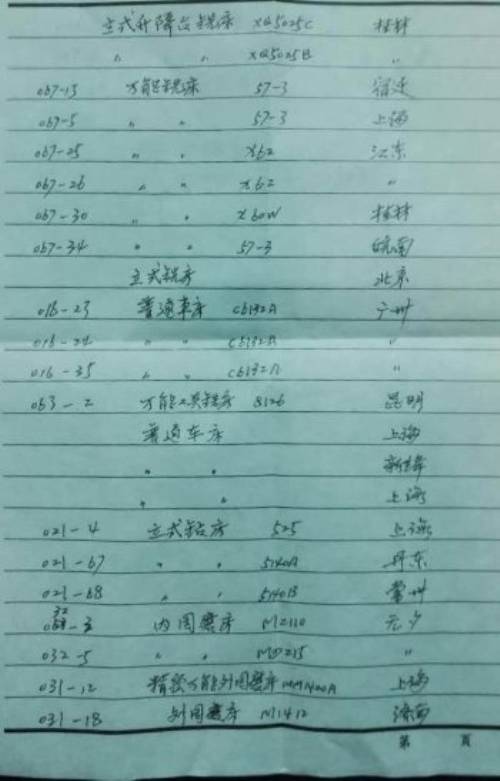 立式升降台铣床 XQ5025C 桂林
〃 〃 XQ5025B 〃
067-13 万能铣床 57-3 宿迁
067-5 〃 〃 57-3 上海
067-25 〃 〃 X62 江东
067-26 〃 〃 X62 〃
067-30 〃 〃 X60W 桂林
067-34 〃 〃 57-3 皖南
立式铣床 北京
016-23 普通车床 C6132A 广州
016-24 〃 〃 C6132A 〃
016-35 〃 〃 C6132A 〃
063-2 万能工具铣床 8126 昆明
普通车床 上海
〃 〃
〃 〃 上海
021-4 立式钻床 525 上海
021-67 〃 〃 5140A 丹东
021-68 〃 〃 5140B 常州
32-3 内圆磨床 M2110 无夕
032-5 〃 〃 MD215 〃
031-12 精密万能外圆磨床 MM1420A 上海
031-18 外圆磨床 M1412 济南
第 页